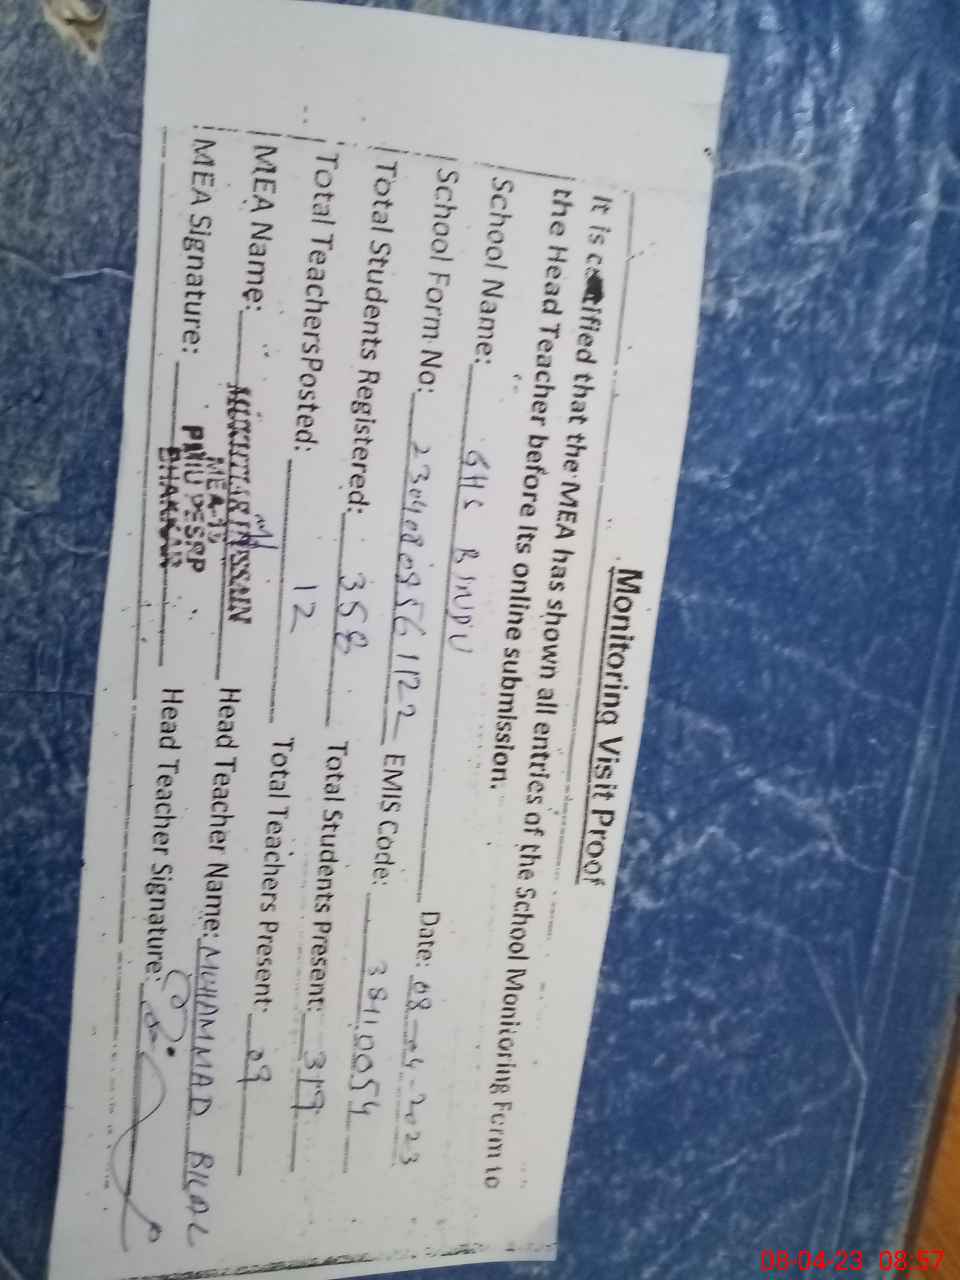 Monitoring Visit Proof
It is certified that the MEA has shown all entries of the School Monitoring Form to
the Head Teacher before its online submission.
School Name: GHS BINDU Date: 08-04-2023
School Form No: 23040809561122 EMIS Code: 38110054
Total Students Registered: 358 Total Students Present: 319
Total TeachersPosted: 12 Total Teachers Present: 09
MEA Name: MUKHTIAR HUSSAIN Head Teacher Name: MUHAMMAD BILAL
MEA-15
MEA Signature: PMIU PESRP Head Teacher Signature:
BHAKKAR
08-04-23 08:57